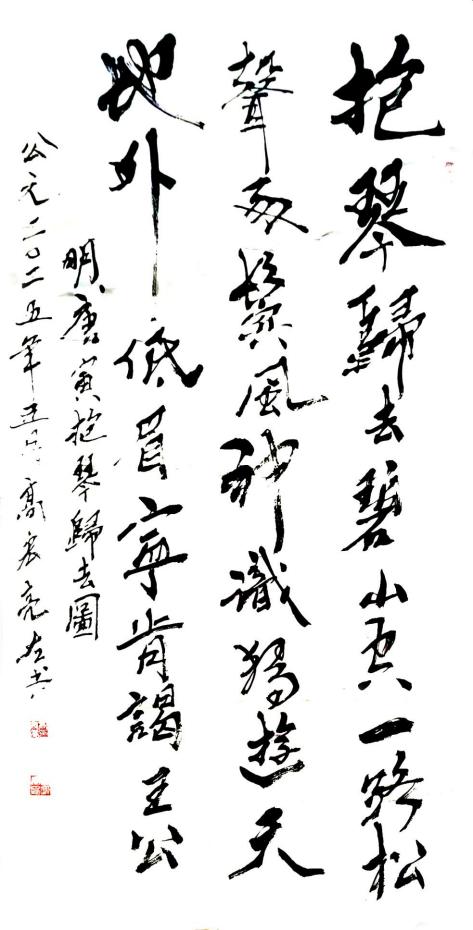 抱琴歸去碧山空一路松
聲兩鬢風神識獨遊天
地外低眉寧肯謁主公
明唐寅抱琴歸去圖
公元二〇二五年正月高宏亮左书